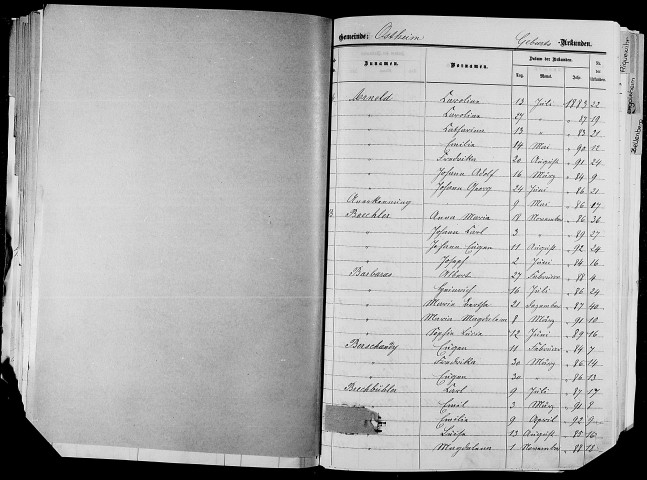 Gemeinde: Ostheim Geburts-Urkunden.
Datum der Urkunden. Nr. der Urkunden.
Zunamen. Vornamen. Tag. Monat. Jahr.
Arnold Carolina 13 Juli 1883 22
" Carolina 27 " " 87 19
" Catharina 13 " " 83 21
" Emilie Mai " 90 12
" Fredrika 20 August " 91 24
" Johann Adolf 16 März " 84 9
" Johann Georg 24 Juni " 86 21
Anerkennung 9 Mai " 86 17
Baechler Anna Maria 18 November " 86 36
" Johann Carl 3 " " 89 27
" Johann Eugen 11 August " 92 24
" Josef 2 Juni " 84 16
Barbaras Albert 27 Februar " 88 4
" Heinrich 16 Juli " 86 24
" Maria Bertha 21 Dezember " 87 40
" Maria Magdalena 8 März " 91 10
" Sophie Luisa 12 Juni " 89 16
Eugen 11 Februar " 84 7
" Fredrika 30 März " 86 14
" Eugen 30 " " 86 13
Brechbühler Carl 9 Juli " 87 17
Emil 3 März " 91 8
Emilie 9 April " 92 9
Luisa 13 August " 85 16
Magdalena 1 November " 88
Zellenberg